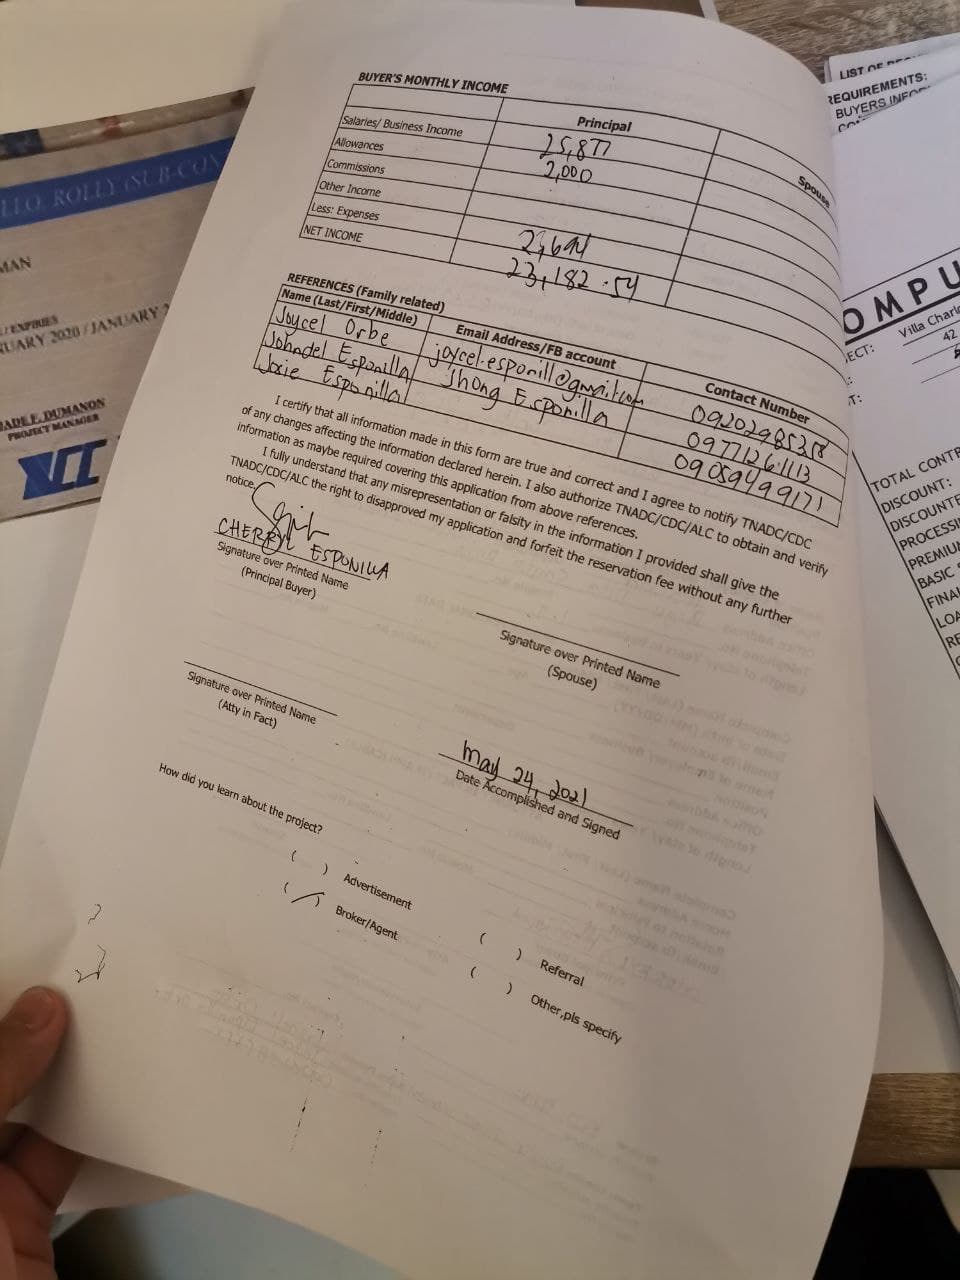 BUYER'S MONTHLY INCOME
Principal
Spouse
Salaries/ Business Income 25,877
Allowances 2,000
Commissions
Other Income
Less: Expenses
NET INCOME 23,182.54
REFERENCES (Family related)
Name (Last/First/Middle) Email Address/FB account Contact Number
Joycel Orbe joycel.esponill@gmail.com
Johndel Esponilla Jhong Esponilla 09771261113
Joxie Esponilla 09059499171
I certify that all information made in this form are true and correct and I agree to notify TNADC/CDC
of any changes affecting the information declared herein. I also authorize TNADC/CDC/ALC to obtain and verify
information as maybe required covering this application from above references.
I fully understand that any misrepresentation or falsity in the information I provided shall give the
TNADC/CDC/ALC the right to disapproved my application and forfeit the reservation fee without any further
notice.
CHERRYL ESPONILLA
Signature over Printed Name
(Principal Buyer)
Signature over Printed Name
(Spouse)
Signature over Printed Name
(Atty in Fact)
May 24, 2021
Date Accomplished and Signed
How did you learn about the project?
( ) Advertisement
( / ) Broker/Agent
( ) Referral
( ) Other,pls specify
LLO, ROLLY (SUB-CON
MAN
EXPIRIES
UARY 2020 / JANUARY
ADE F. DUMANON
PROJECT MANAGER
LIST OF
REQUIREMENTS:
BUYERS INFO
OMPU
ECT: Villa Charl
42
T:
TOTAL CONTR
DISCOUNT:
DISCOUNTE
PROCESSI
PREMIUM
BASIC
FINA
LOA
RE